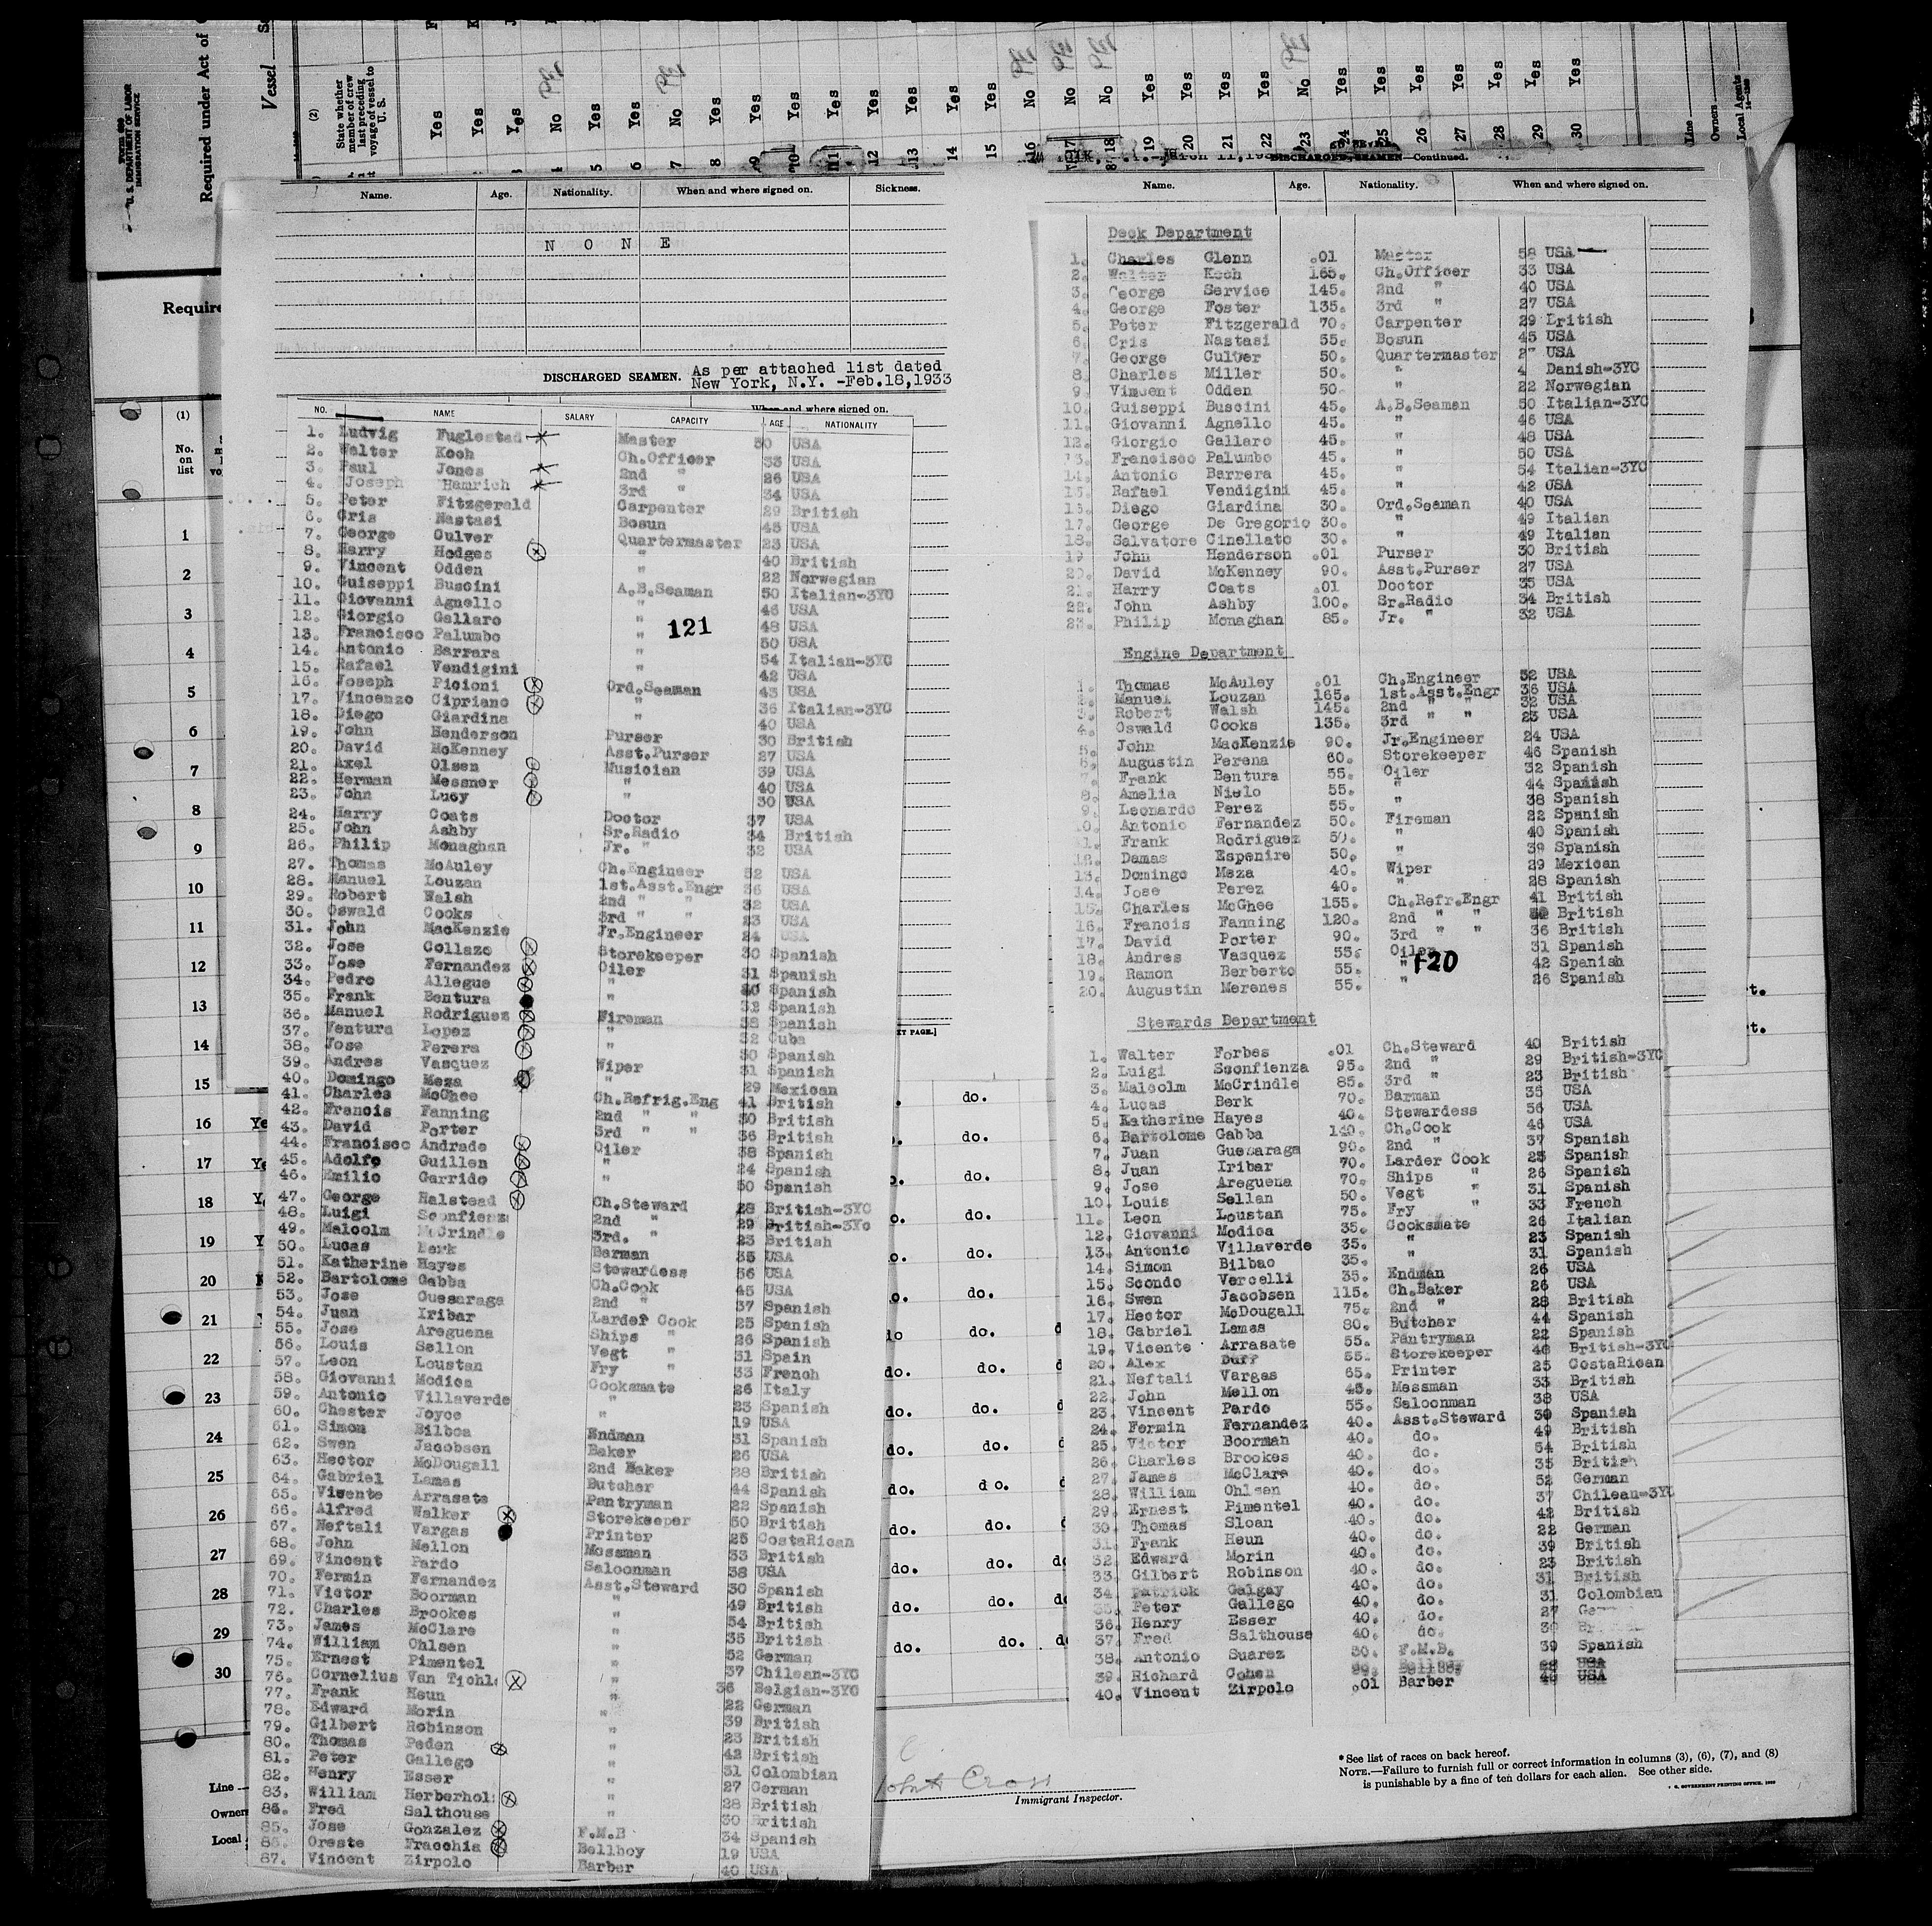 Form 689
U. S. DEPARTMENT OF LABOR
IMMIGRATION SERVICE
Required under Act of
Vessel
(2)
State whether
member of crew
last preceding
voyage of vessel to
U. S.
Yes
Yes
Yes
No
Yes
Yes
No
Yes
Yes
Yes
Yes
Yes
Yes
Yes
Yes
No
No
No
Yes
Yes
Yes
Yes
No
Yes
Yes
Yes
Yes
Yes
Yes
Yes
Line
Owners
Local Agents
Name. Age. Nationality. When and where signed on. Sickness.
N O N E
DISCHARGED SEAMEN. As per attached list dated
New York, N.Y. -Feb.18,1933
When and where signed on.
NO. NAME SALARY CAPACITY AGE NATIONALITY
1. Ludvig Fuglestad Master 50 USA
2. Walter Koch Ch.Officer 33 USA
3. Paul Jones 2nd " 26 USA
4. Joseph Hamrich 3rd " 34 USA
5. Peter Fitzgerald Carpenter 29 British
6. Cris Nastasi Bosun 45 USA
7. George Culver Quartermaster 23 USA
8. Harry Hodges " 40 British
9. Vincent Odden " 22 Norwegian
10. Guiseppi Buscini A.B.Seaman 50 Italian-3YC
11. Giovanni Agnello " 46 USA
12. Giorgio Gallaro " 48 USA
121
13. Francisco Palumbo " 50 USA
14. Antonio Barrara " 54 Italian-3YC
15. Rafael Vendigini " 42 USA
16. Joseph Picioni Ord.Seaman 43 USA
17. Vincenzo Cipriano " 36 Italian-3YC
18. Diego Giardina " 40 USA
19. John Henderson Purser 30 British
20. David McKenney Asst.Purser 27 USA
21. Axel Olsen Musician 39 USA
22. Herman Messner " 40 USA
23. John Lucy " 30 USA
24. Harry Coats Doctor 37 USA
25. John Ashby Sr.Radio 34 British
26. Philip Monaghan Jr. " 32 USA
27. Thomas McAuley Ch.Engineer 52 USA
28. Manuel Louzan 1st.Asst.Engr 36 USA
29. Robert Walsh 2nd " " 32 USA
30. Oswald Cooks 3rd " " 23 USA
31. John MacKenzie Jr.Engineer 24 USA
32. Jose Collazo Storekeeper 30 Spanish
33. Jose Fernandez Oiler 31 Spanish
34. Pedro Allegue " 40 Spanish
35. Frank Bentura " 32 Spanish
36. Manuel Rodriguez Fireman 38 Spanish
37. Ventura Lopez " 32 Cuba
38. Jose Perera " 30 Spanish
39. Andres Vasquez Wiper 31 Spanish
40. Domingo Meza " 29 Mexican
41. Charles McGhee Ch.Refrig.Eng 41 British
42. Francis Fanning 2nd " " 30 British
43. David Porter 3rd " " 36 British
44. Francisco Andrade Oiler 38 Spanish
45. Adolfo Guillen " 24 Spanish
46. Emilio Garrido " 50 Spanish
47. George Halstead Ch.Steward 28 British-3YC
48. Luigi Sconfienz 2nd " 29 British-3Yc
49. Malcolm McCrindle 3rd. " 23 British
50. Lucas Berk Barman 35 USA
51. Katherine Hayes Stewardess 56 USA
52. Bartolome Gabba Ch.Cook 45 USA
53. Jose Guesaraga 2nd " 37 Spanish
54. Juan Iribar Larder Cook 25 Spanish
55. Jose Areguena Ships " 26 Spanish
56. Louis Sellon Vegt " 31 Spain
57. Leon Loustan Fry " 33 French
58. Giovanni Modica Cooksmate 26 Italy
59. Antonio Villaverde " 23 Spanish
60. Chester Joyce " 19 USA
61. Simon Bilboa Endman 31 Spanish
62. Swen Jacobsen Baker 26 USA
63. Hector McDougall 2nd Baker 28 British
64. Gabriel Lamas Butcher 44 Spanish
65. Vicente Arrasate Pantryman 22 Spanish
66. Alfred Walker Storekeeper 50 British
67. Neftali Vargas Printer 25 CostaRican
68. John Mellon Messman 33 British
69. Vincent Pardo Saloonman 38 USA
70. Fermin Fernandez Asst.Steward 30 Spanish
71. Victor Boorman " 49 British
72. Charles Brookes " 54 British
73. James McClare " 35 British
74. William Ohlsen " 52 German
75. Ernest Pimentel " 37 Chilean-3YC
76. Cornelius Van Tichl " 36 Belgian-3YC
77. Frank Heun " 22 German
78. Edward Morin " 39 British
79. Gilbert Robinson " 23 British
80. Thomas Peden " 42 British
81. Peter Gallego " 31 Colombian
82. Henry Esser " 27 German
83. William Herberhol " 28 British
84. Fred Salthouse " 30 British
85. Jose Gonzalez F.M.B 34 Spanish
86. Oreste Fracchia Bellboy 19 USA
87. Vincent Zirpolo Barber 40 USA
DISCHARGED SEAMEN—Continued.
Name. Age. Nationality. When and where signed on.
Deck Department
1. Charles Glenn .01 Master 58 USA
2. Walter Koch 165. Ch.Officer 33 USA
3. George Service 145. 2nd " 40 USA
4. George Foster 135. 3rd " 27 USA
5. Peter Fitzgerald 70. Carpenter 29 British
6. Cris Nastasi 55. Bosun 45 USA
7. George Culver 50. Quartermaster USA
8. Charles Miller 50. " Danish-3YC
9. Vincent Odden 50. " 22 Norwegian
10. Guiseppi Buscini 45. A.B.Seaman 50 Italian-3YC
11. Giovanni Agnello 45. " 46 USA
12. Giorgio Gallaro 45. " 48 USA
13. Francisco Palumbo 45. " 50 USA
14. Antonio Barrera 45. " 54 Italian-3YC
15. Rafael Vendigini 45. " 42 USA
16. Diego Giardina 30. Ord.Seaman 40 USA
17. George De Gregorio 30. " 49 Italian
18. Salvatore Cinellato 30. " 49 Italian
19. John Henderson .01 Purser 30 British
20. David McKenney 90. Asst.Purser 27 USA
21. Harry Coats .01 Doctor 35 USA
22. John Ashby 100. Sr.Radio 34 British
23. Philip Monaghan 85. Jr. " 32 USA
Engine Department
1. Thomas McAuley .01 Ch.Engineer 52 USA
2. Manuel Louzan 165. 1st.Asst.Engr 36 USA
3. Robert Walsh 145. 2nd " " 32 USA
4. Oswald Cooks 135. 3rd " " 23 USA
5. John MacKenzie 90. Jr.Engineer 24 USA
6. Augustin Perena 60. Storekeeper 46 Spanish
7. Frank Bentura 55. Oiler 32 Spanish
8. Amelia Nielo 55. " 44 Spanish
9. Leonardo Perez 55. " 38 Spanish
10. Antonio Fernandez 50. Fireman 22 Spanish
11. Frank Rodriguez 50. " 40 Spanish
12. Damas Espenire 50. " 39 Spanish
13. Domingo Meza 40. Wiper 29 Mexican
14. Jose Perez 40. " 28 Spanish
15. Charles McGhee 155. Ch.Refr.Engr 41 British
16. Francis Fanning 120. 2nd " " British
17. David Porter 90. 3rd " " 36 British
18. Andres Vasquez 55. Oiler 31 Spanish
120
19. Ramon Berberto 55. " 42 Spanish
20. Augustin Merenes 55. " 26 Spanish
Stewards Department
1. Walter Forbes .01 Ch.Steward 40 British
2. Luigi Sconfienza 95. 2nd " 29 British-3YC
3. Malcolm McCrindle 85. 3rd " 23 British
4. Lucas Berk 70. Barman 35 USA
5. Katherine Hayes 40. Stewardess 56 USA
6. Bartolome Gabba 140. Ch.Cook 46 USA
7. Juan Guesaraga 90. 2nd " 37 Spanish
8. Juan Iribar 70. Larder Cook 25 Spanish
9. Jose Areguena 70. Ships " 26 Spanish
10. Louis Sellan 50. Vegt " 31 Spanish
11. Leon Loustan 75. Fry " 33 French
12. Giovanni Modica 35. Cooksmate 26 Italian
13. Antonio Villaverde 35. " 23 Spanish
14. Simon Bilbao 35. " 31 Spanish
15. Scondo Vercelli 35. Endman 26 USA
16. Swen Jacobsen 115. Ch.Baker 26 USA
17. Hector McDougall 75. 2nd " 28 British
18. Gabriel Lamas 80. Butcher 44 Spanish
19. Vicente Arrasate 55. Pantryman 22 Spanish
20. Alex Duff 55. Storekeeper British-3YC
21. Neftali Vargas 65. Printer 25 CostaRican
22. John Mellon 45. Messman 33 British
23. Vincent Pardo 55. Saloonman 38 USA
24. Fermin Fernandez 40. Asst.Steward 30 Spanish
25. Victor Boorman 40. do. 49 British
26. Charles Brookes 40. do. 54 British
27. James McClare 40. do. 35 British
28. William Ohlsen 40. do. 52 German
29. Ernest Pimentel 40. do. 37 Chilean-3YC
30. Thomas Sloan 40. do. 42 British
31. Frank Heun 40. do. 22 German
32. Edward Morin 40. do. 39 British
33. Gilbert Robinson 40. do. 23 British
34. Patrick Galgay 40. do. 31 British
35. Peter Gallego 40. do. 31 Colombian
36. Henry Esser 40. do. 27
37. Fred Salthouse 40. do.
38. Antonio Suarez 30. F.M.B. 39 Spanish
39. Richard Cohen USA
40. Vincent Zirpolo .01 Barber 40 USA
Immigrant Inspector.
*See list of races on back hereof.
NOTE.—Failure to furnish full or correct information in columns (3), (6), (7), and (8)
is punishable by a fine of ten dollars for each alien. See other side.